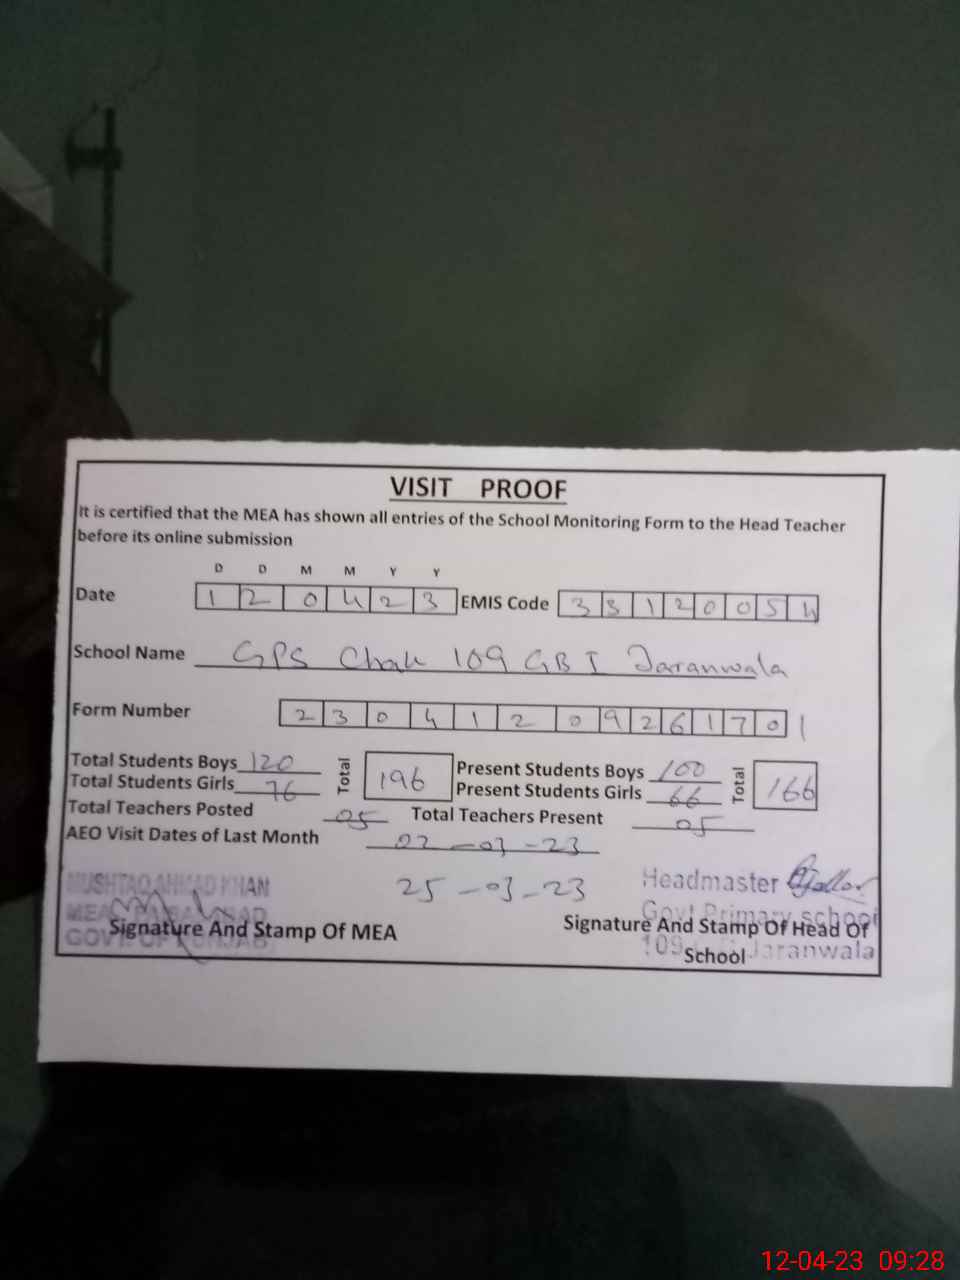 VISIT PROOF
It is certified that the MEA has shown all entries of the School Monitoring Form to the Head Teacher
before its online submission
D D M M Y Y
Date 1 2 0 4 2 3 EMIS Code 3 3 1 2 0 0 5 4
School Name GPS Chak 109 GB I Jaranwala
Form Number 2 3 0 4 1 2 0 9 2 6 1 7 0 1
Total Students Boys 120 Total 196 Present Students Boys 100 Total 166
Total Students Girls 76 Present Students Girls 66
Total Teachers Posted 05 Total Teachers Present 05
AEO Visit Dates of Last Month 02-03-23
25-03-23
MUSHTAQ AHMAD KHAN
MEA FAISALABAD
GOVT OF PUNJAB
Signature And Stamp Of MEA
Headmaster
Govt Primary school
109 Jaranwala
Signature And Stamp Of Head Of
School
12-04-23 09:28